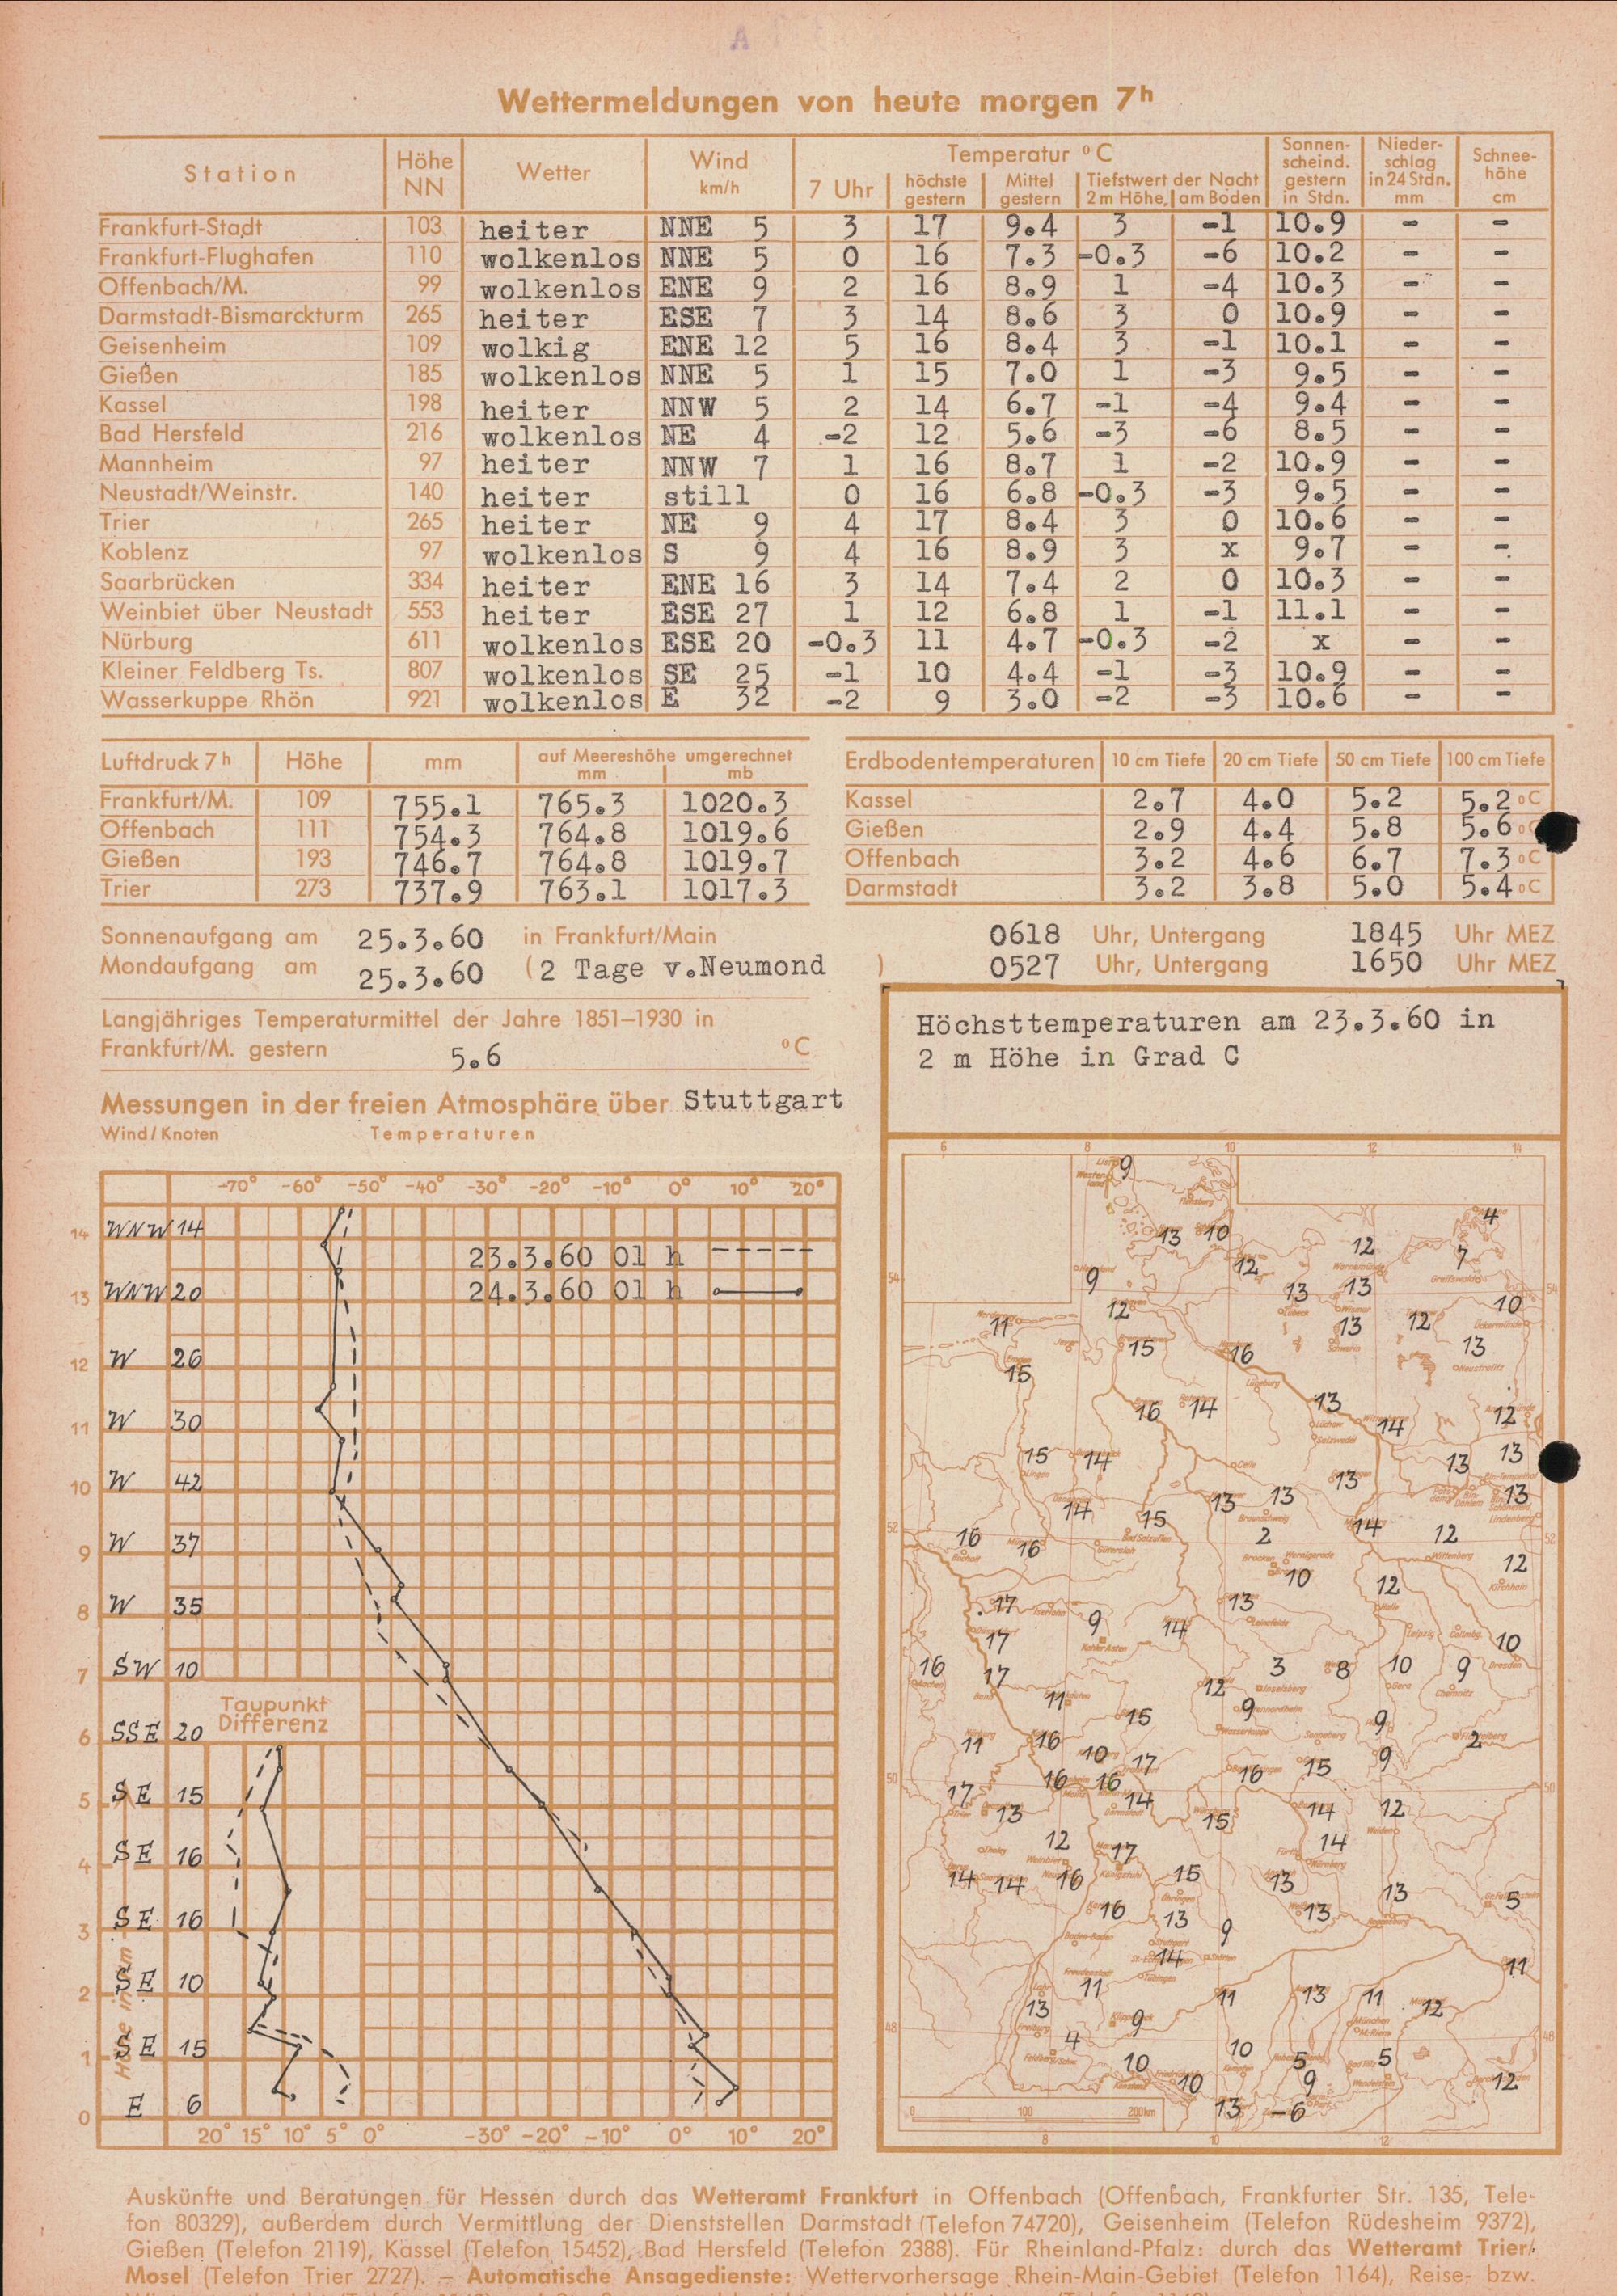 Wettermeldungen von heute morgen 7h
Station Höhe NN Wetter Wind km/h Temperatur °C 7 Uhr höchste gestern Mittel gestern Tiefstwert der Nacht 2 m Höhe, am Boden Sonnen-scheind. gestern in Stdn. Nieder-schlag in 24 Stdn. mm Schnee-höhe cm
Frankfurt-Stadt 103 heiter NNE 5 3 17 9.4 3 -1 10.9 - -
Frankfurt-Flughafen 110 wolkenlos NNE 5 0 16 7.3 -0.3 -6 10.2 - -
Offenbach/M. 99 wolkenlos ENE 9 2 16 8.9 1 -4 10.3 - -
Darmstadt-Bismarckturm 265 heiter ESE 7 3 14 8.6 3 0 10.9 - -
Geisenheim 109 wolkig ENE 12 5 16 8.4 3 -1 10.1 - -
Gießen 185 wolkenlos NNE 5 1 15 7.0 1 -3 9.5 - -
Kassel 198 heiter NNW 5 2 14 6.7 -1 -4 9.4 - -
Bad Hersfeld 216 wolkenlos NE 4 -2 12 5.6 -3 -6 8.5 - -
Mannheim 97 heiter NNW 7 1 16 8.7 1 -2 10.9 - -
Neustadt/Weinstr. 140 heiter still 0 16 6.8 -0.3 -3 9.5 - -
Trier 265 heiter NE 9 4 17 8.4 3 0 10.6 - -
Koblenz 97 wolkenlos S 9 4 16 8.9 3 x 9.7 - -
Saarbrücken 334 heiter ENE 16 3 14 7.4 2 0 10.3 - -
Weinbiet über Neustadt 553 heiter ESE 27 1 12 6.8 1 -1 11.1 - -
Nürburg 611 wolkenlos ESE 20 -0.3 11 4.7 -0.3 -2 x - -
Kleiner Feldberg Ts. 807 wolkenlos SE 25 -1 10 4.4 -1 -3 10.9 - -
Wasserkuppe Rhön 921 wolkenlos E 32 -2 9 3.0 -2 -3 10.6 - -
Luftdruck 7h Höhe mm auf Meereshöhe umgerechnet mm mb
Frankfurt/M. 109 755.1 765.3 1020.3
Offenbach 111 754.3 764.8 1019.6
Gießen 193 746.7 764.8 1019.7
Trier 273 737.9 763.1 1017.3
Erdbodentemperaturen 10 cm Tiefe 20 cm Tiefe 50 cm Tiefe 100 cm Tiefe
Kassel 2.7 4.0 5.2 5.2 °C
Gießen 2.9 4.4 5.8 5.6 °C
Offenbach 3.2 4.6 6.7 7.3 °C
Darmstadt 3.2 3.8 5.0 5.4 °C
Sonnenaufgang am 25.3.60 in Frankfurt/Main 0618 Uhr, Untergang 1845 Uhr MEZ
Mondaufgang am 25.3.60 (2 Tage v.Neumond ) 0527 Uhr, Untergang 1650 Uhr MEZ
Langjähriges Temperaturmittel der Jahre 1851–1930 in
Frankfurt/M. gestern 5.6 °C
Höchsttemperaturen am 23.3.60 in
2 m Höhe in Grad C
Messungen in der freien Atmosphäre über Stuttgart
Wind/Knoten Temperaturen
-70° -60° -50° -40° -30° -20° -10° 0° 10° 20°
14 WNW 14
23.3.60 01 h
24.3.60 01 h
13 WNW 20
12 W 26
11 W 30
10 W 42
9 W 37
8 W 35
7 SW 10
Taupunkt
Differenz
6 SSE 20
5 SE 15
4 SE 16
3 SE 16
2 SE 10
1 SE 15
0 E 6
Höhe in km
20° 15° 10° 5° 0° -30° -20° -10° 0° 10° 20°
6 8 10 12 14
9
13 10 12 4
9 12 13 13 7
11 12 13 12 10
15 15 16 13
16 14 13 14 12
15 14 13 13 13
14 15 13 13 14 13
16 16 2 12 12
10 13 12
17 9 14
17 10
16 17 12 3 8 10 9
11 15 9 9 2
11 16 10 17 16 15 9
17 13 16 16 14 15 14 12
12 17 14
14 14 16 15 13 13 5
16 13 9 13
14 11
13 11 11 13 11 12
4 9 10 5 5
10 10 9 12
13 -6
0 100 200km
8 10 12
Auskünfte und Beratungen für Hessen durch das Wetteramt Frankfurt in Offenbach (Offenbach, Frankfurter Str. 135, Tele-
fon 80329), außerdem durch Vermittlung der Dienststellen Darmstadt (Telefon 74720), Geisenheim (Telefon Rüdesheim 9372),
Gießen (Telefon 2119), Kassel (Telefon 15452), Bad Hersfeld (Telefon 2388). Für Rheinland-Pfalz: durch das Wetteramt Trier/
Mosel (Telefon Trier 2727). – Automatische Ansagedienste: Wettervorhersage Rhein-Main-Gebiet (Telefon 1164), Reise- bzw.